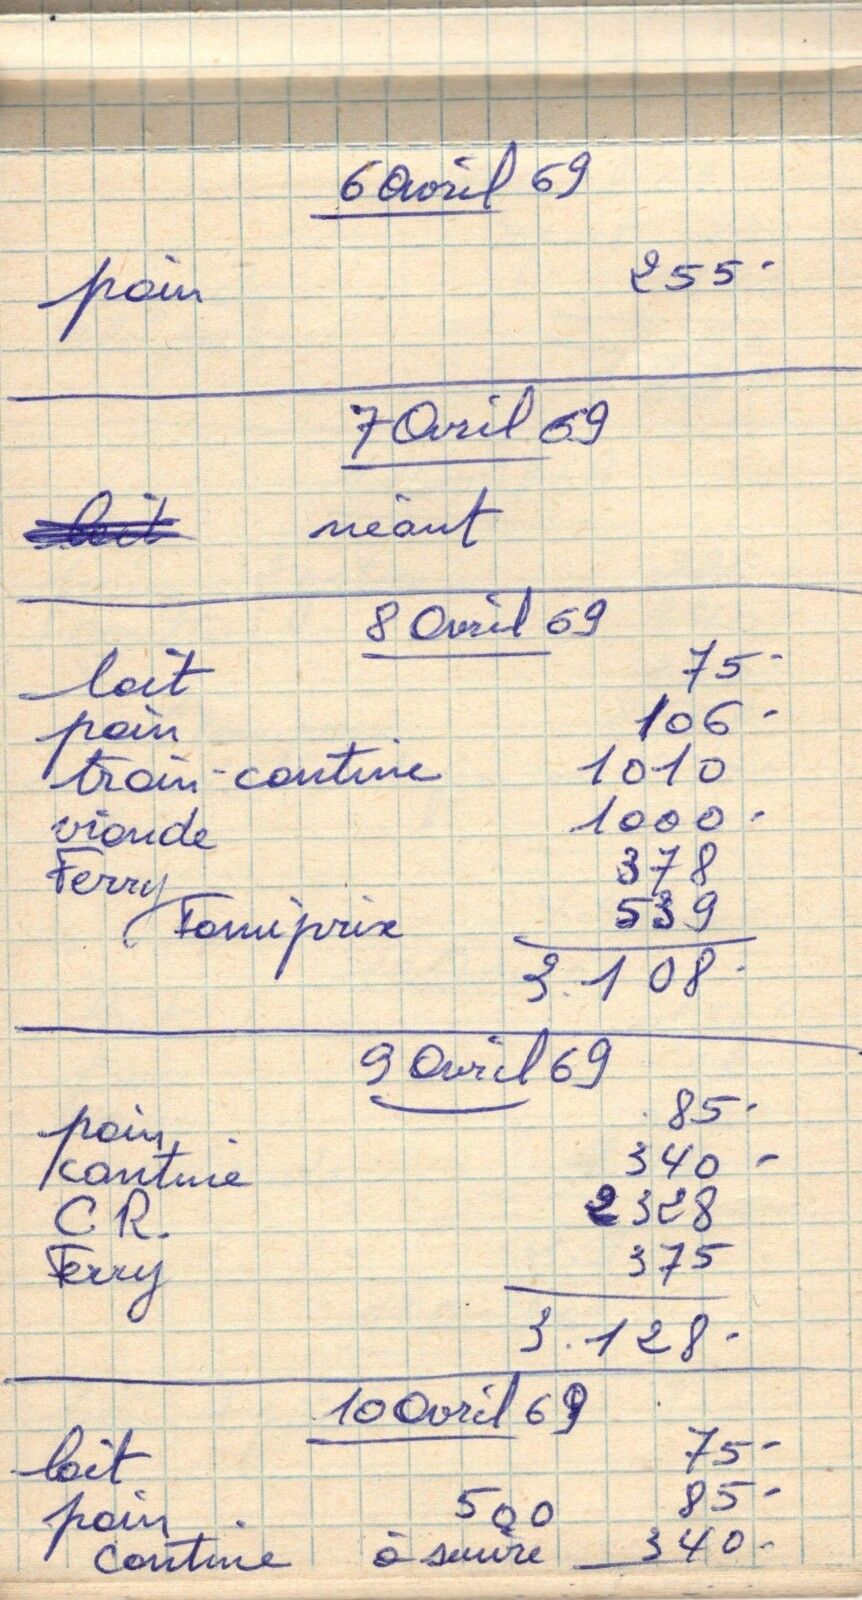 6 Avril 69
pain 255.-
7 Avril 69
lait néant
8 Avril 69
lait 75.-
pain 106.-
train-cantine 1010
viande 1000.-
Ferry 378
Famiprix 539
3.108.-
9 Avril 69
pain 85.-
cantine 340.-
C R. 2328
Ferry 375
3.128.-
10 Avril 69
lait 75.-
pain 500 85.-
cantine à suivre 340.-